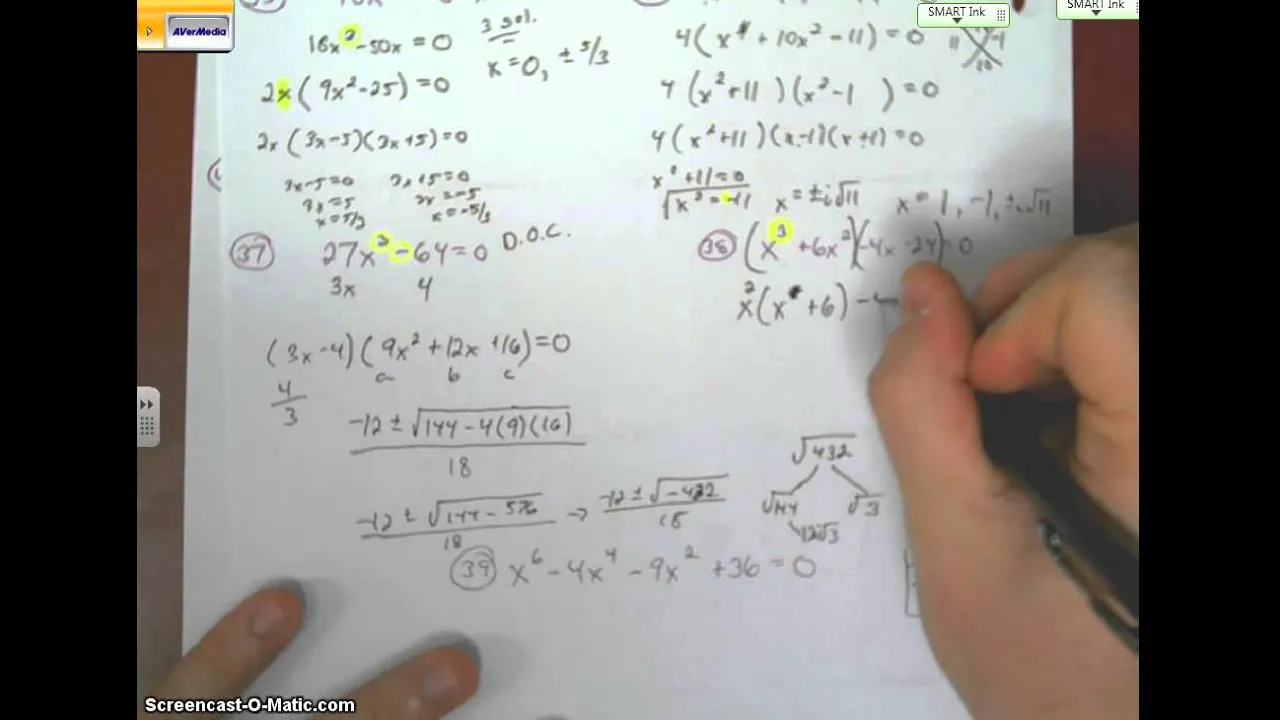 AVerMedia
SMART Ink
SMART Ink
18x³ - 50x = 0
3 sol.
x = 0, ± 5/3
2x ( 9x² - 25) = 0
2x ( 3x - 5)(3x + 5) = 0
3x - 5 = 0
3x + 5 = 0
3x = 5
3x = -5
x = 5/3
x = -5/3
4 ( x⁴ + 10x² - 11) = 0
11 -1
10
4 ( x² + 11 ) (x² - 1 ) = 0
4 ( x² + 11 ) (x - 1)(x + 1) = 0
x² + 11 = 0
√x² = -11
x = ± i√11
x = 1, -1, ± i√11
37 27x³ - 64 = 0 D.O.C.
3x 4
(3x - 4) ( 9x² + 12x + 16) = 0
a b c
4
3
-12 ± √144 - 4(9)(16)
18
-12 ± √144 - 576
18
→
-12 ± √-432
18
√432
√144 √3
12√3
38 (x³ + 6x²)(-4x - 24) = 0
x² (x + 6) - 4
39 x⁶ - 4x⁴ - 9x² + 36 = 0
Screencast-O-Matic.com